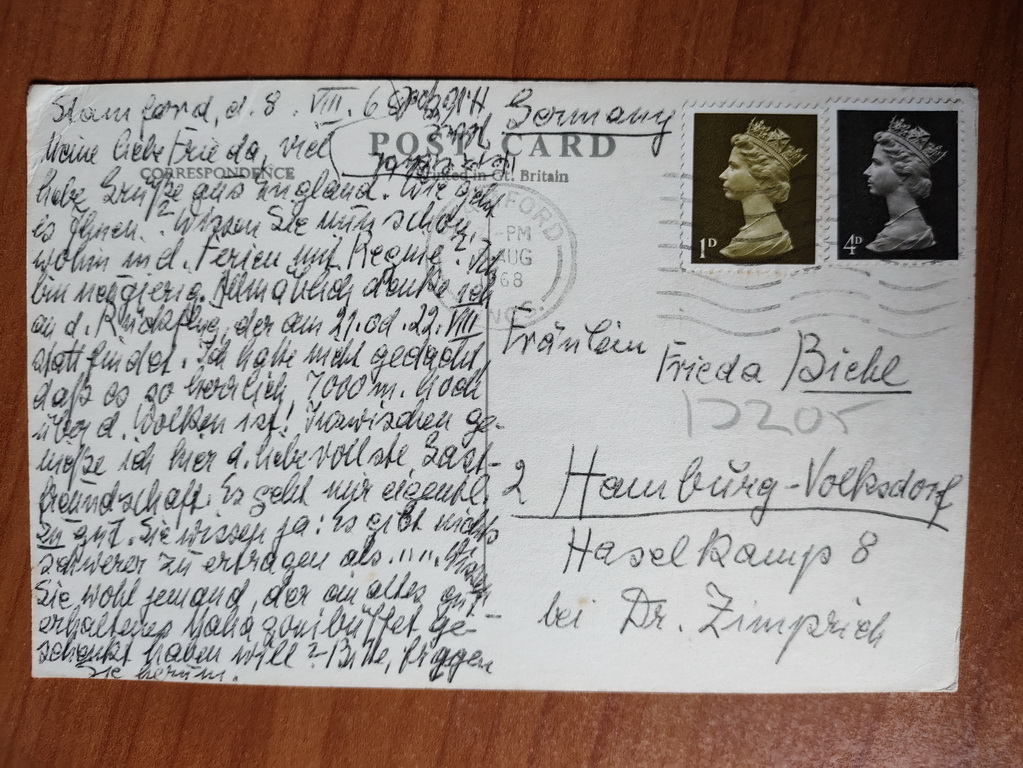 Stamford, d. 8. VIII. 68
Meine liebe Frieda, viel
liebe Grüße aus England! Wie geht
es Ihnen? Wissen Sie nun schon,
wohin in d. Ferien mit Regine? Ich
bin neugierig. Allmählich denke ich
an d. Rückflug, der am 21. od. 22. VIII
stattfindet. Ich hatte nicht gedacht
daß es so herrlich 7000 m. hoch
über d. Wolken ist! Inzwischen ge-
nieße ich hier d. liebevollste Gast-
freundschaft. Es geht mir eigentl.
zu gut. Sie wissen ja: Es gibt nichts
schwerer zu ertragen als ..... Wissen
Sie wohl jemand, der ein altes gut
erhaltenes Mahagonibüffet ge-
schenkt haben will? Bitte, fragen
Sie herum.
POST CARD
CORRESPONDENCE
Printed in Gt. Britain
Germany
STAMFORD
-PM
AUG
68
LINCS.
1D
4D
Fräulein
Frieda Biehl
12205
2 Hamburg-Volksdorf
Haselkamp 8
bei Dr. Zimprich